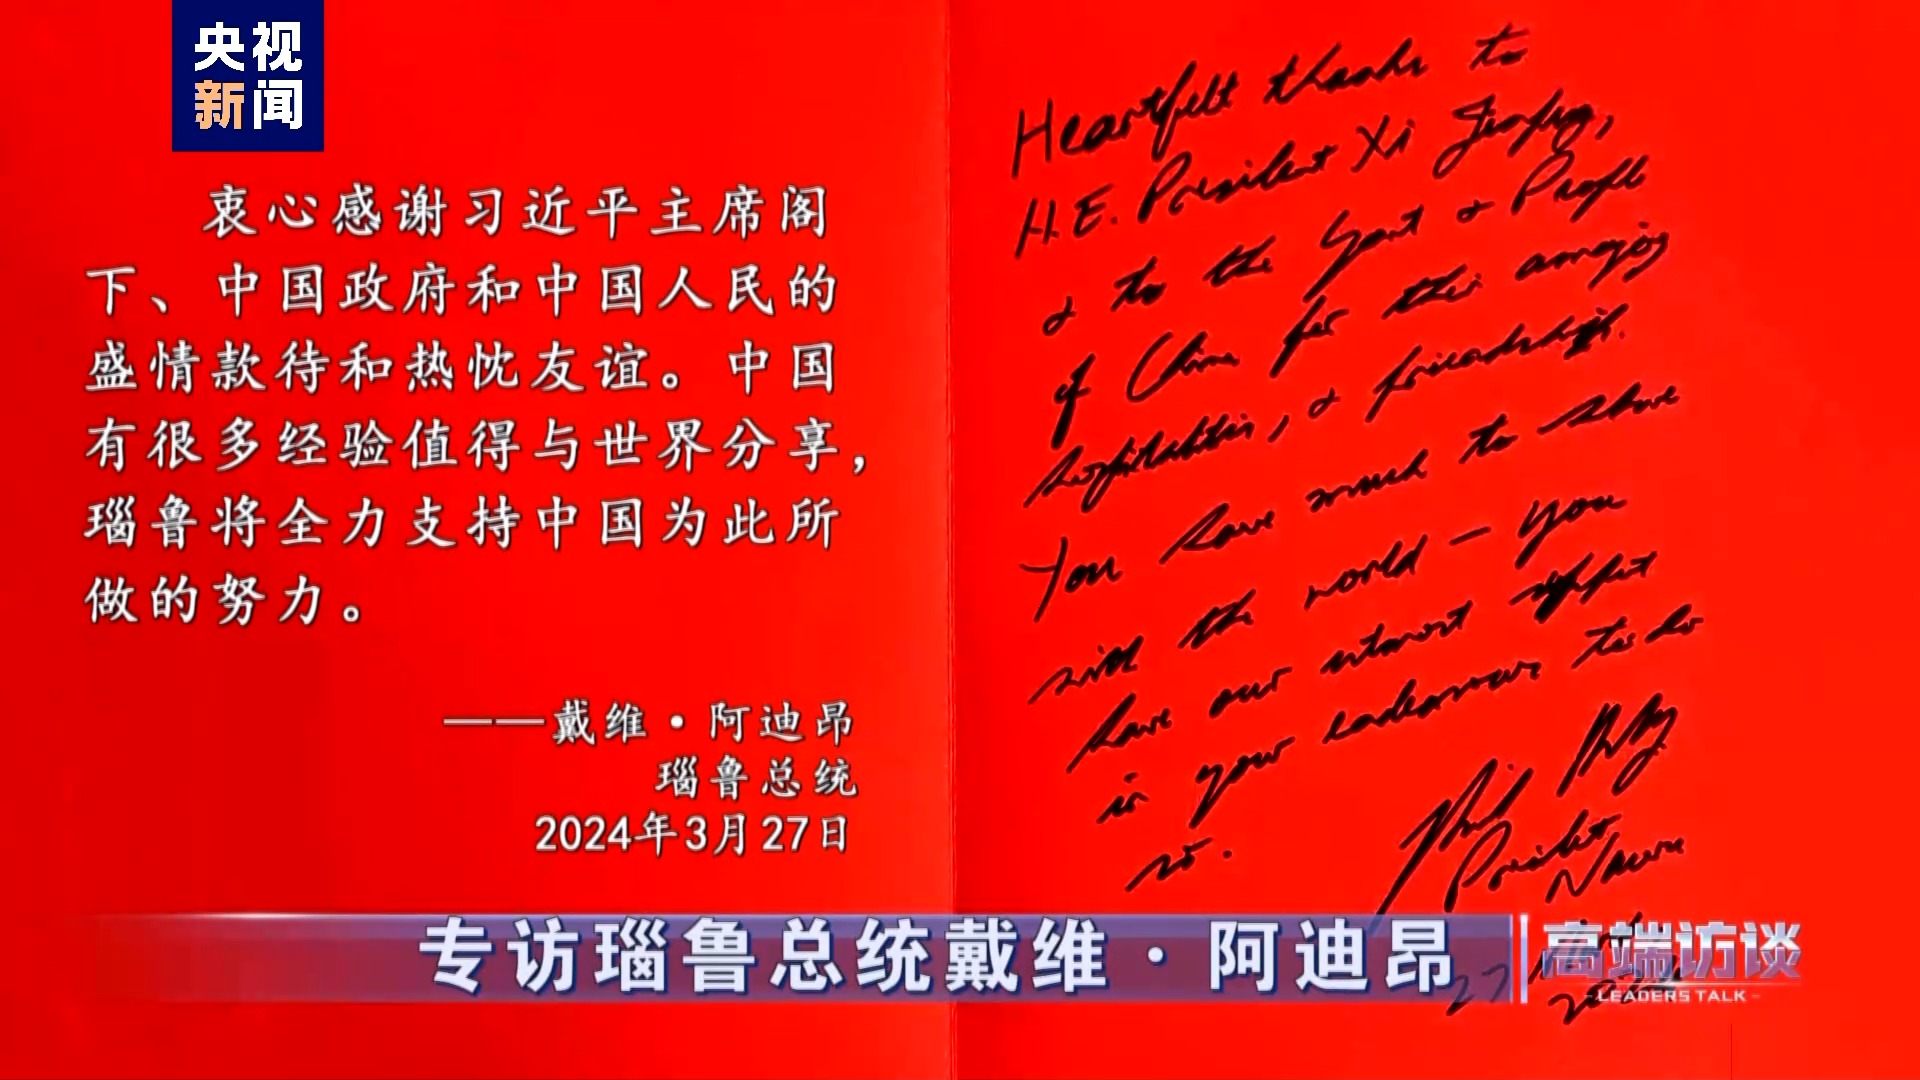 央视
新闻
衷心感谢习近平主席阁
下、中国政府和中国人民的
盛情款待和热忱友谊。中国
有很多经验值得与世界分享，
瑙鲁将全力支持中国为此所
做的努力。
——戴维·阿迪昂
瑙鲁总统
2024年3月27日
Heartfelt thanks to
H.E. President Xi Jinping,
& to the Govt & People
of China for their amazing
hospitalities, & friendship.
You have much to share
with the world – you
have our utmost support
in your endeavours to do
so.
President
Nauru
27
专访瑙鲁总统戴维·阿迪昂
高端访谈
LEADERS TALK